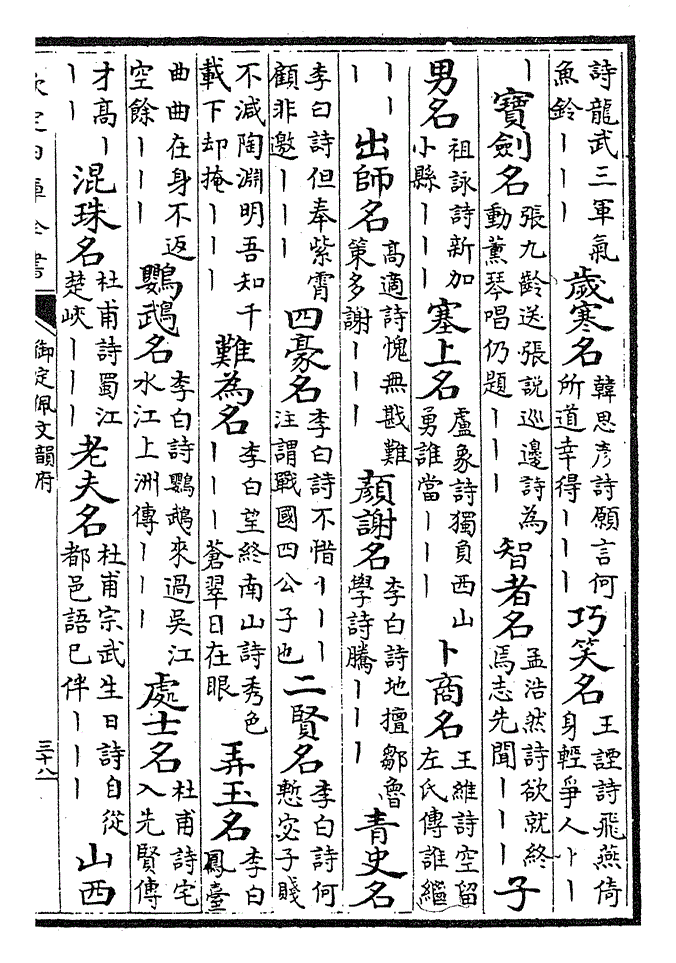 詩龍武三軍氣魚鈴丨丨丨歲寒名韓思彥詩願言何所道幸得丨丨丨巧笑名王諲詩飛燕倚身輕爭人丨丨
丨寶劍名張九齡送張説巡邊詩為動薰琴唱仍題丨丨丨智者名孟浩然詩欲就終焉志先聞丨丨丨子
男名祖詠詩新加小縣丨丨丨塞上名盧象詩獨負西山勇誰當丨丨丨卜商名王維詩空留左氏傳誰繼
丨丨丨出師名高適詩愧無戡難策多謝丨丨丨顏謝名李白詩地擅鄒魯學詩騰丨丨丨青史名
李白詩但奉紫霄顧非邀丨丨丨四豪名李白詩不惜丨丨丨注謂戰國四公子也二賢名李白詩何慙宓子賤
不減陶淵明吾知千載下却掩丨丨丨難為名李白望終南山詩秀色丨丨丨蒼翠日在眼弄玉名李白鳳臺
曲曲在身不返空餘丨丨丨鸚鵡名李白詩鸚鵡來過吳江水江上洲傳丨丨丨處士名杜甫詩宅入先賢傳
才高丨丨丨混珠名杜甫詩蜀江楚峽丨丨丨老夫名杜甫宗武生日詩自從都邑語已伴丨丨丨山西
欽定四庫全書
御定佩文韻府
三十八